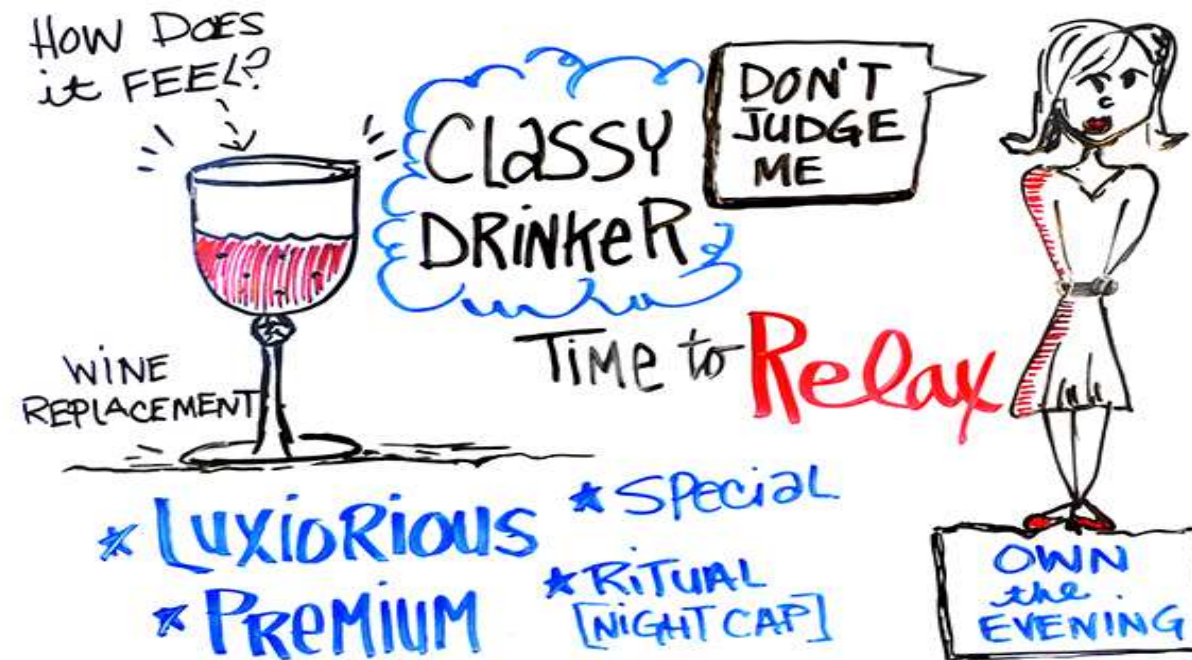 HOW DOES
it FEEL?
CLaSSY
DRiNKeR
DON'T
JUDGE
ME
TiMe to Relax
WiNE
REPLACEMENT
* LUXIORIOUS
* PReMiUM
* SPeciaL
* RiTUAL
[NiGHT CAP]
OWN
the
EVENING